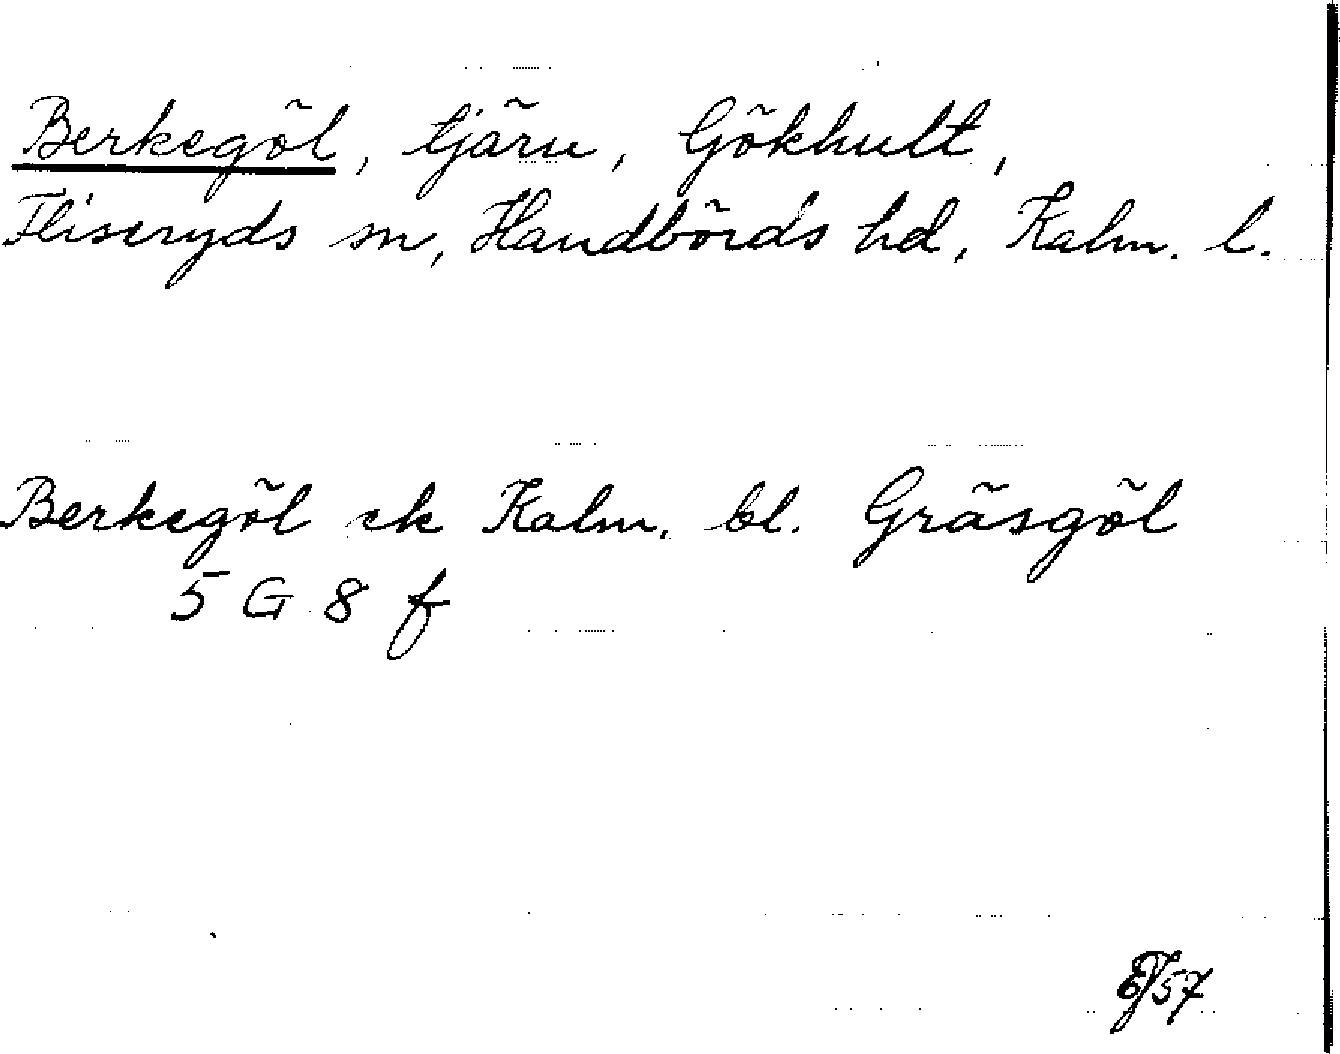 Berkegöl, tjärn, Gökhult,
Fliseryds sn, Handbörds hd, Kalm. l.
Berkegöl ek Kalm. bl. Gräsgöl
5 G 8 f
57